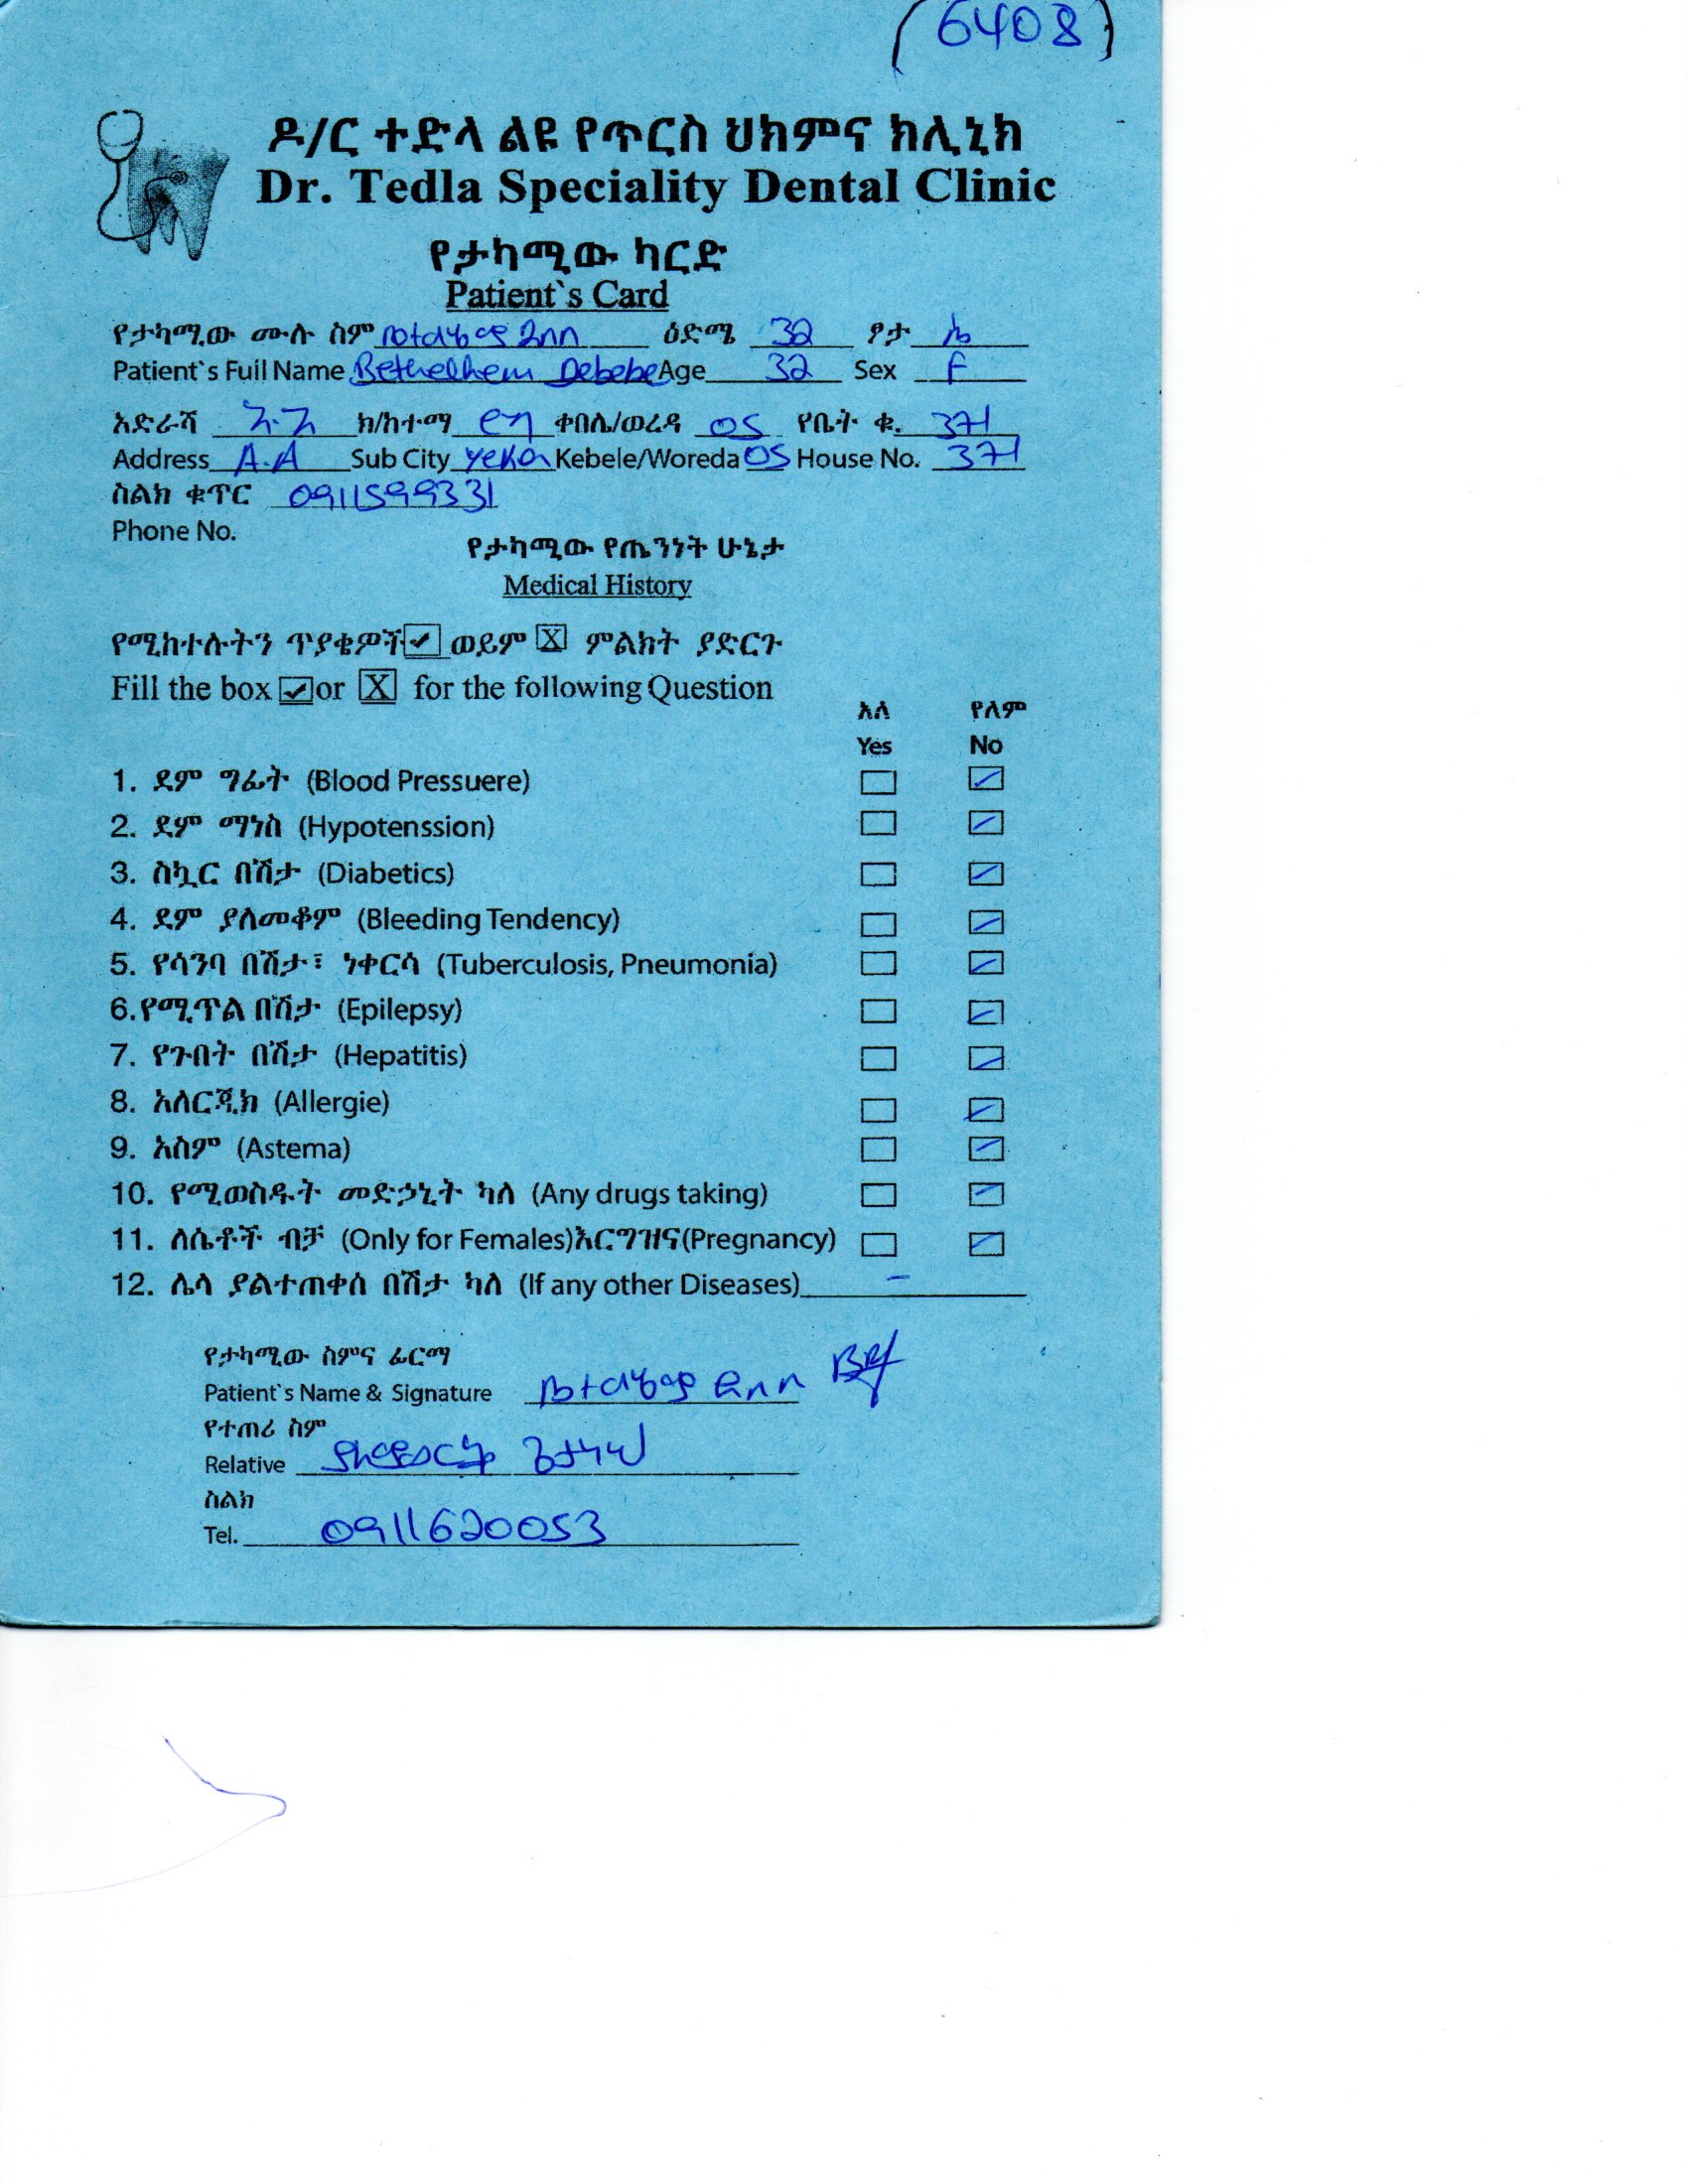 (6408)
ዶ/ር ተድላ ልዩ የጥርስ ህክምና ክሊኒክ
Dr. Tedla Speciality Dental Clinic
የታካሚው ካርድ
Patient`s Card
የታካሚው ሙሉ ስም ቤተልሄም ደበበ ዕድሜ 32 ፆታ ሴ
Patient`s Full Name Bethelhem Debebe Age 32 Sex F
አድራሻ አ.አ ክ/ከተማ የካ ቀበሌ/ወረዳ 05 የቤት ቁ. 371
Address A.A Sub City Yeka Kebele/Woreda 05 House No. 371
ስልክ ቁጥር 0911599331
Phone No.
የታካሚው የጤንነት ሁኔታ
Medical History
የሚከተሉትን ጥያቄዎች ✓ ወይም X ምልክት ያድርጉ
Fill the box ✓ or X for the following Question
አለ የለም
Yes No
1. ደም ግፊት (Blood Pressuere)
2. ደም ማነስ (Hypotenssion)
3. ስኳር በሽታ (Diabetics)
4. ደም ያለመቆም (Bleeding Tendency)
5. የሳንባ በሽታ፣ ነቀርሳ (Tuberculosis, Pneumonia)
6. የሚጥል በሽታ (Epilepsy)
7. የጉበት በሽታ (Hepatitis)
8. አለርጂክ (Allergie)
9. አስም (Astema)
10. የሚወስዱት መድኃኒት ካለ (Any drugs taking)
11. ለሴቶች ብቻ (Only for Females) እርግዝና (Pregnancy)
12. ሌላ ያልተጠቀሰ በሽታ ካለ (If any other Diseases) -
የታካሚው ስምና ፊርማ
Patient`s Name & Signature ቤተልሄም ደበበ
የተጠሪ ስም
Relative
ስልክ
Tel. 0911620053